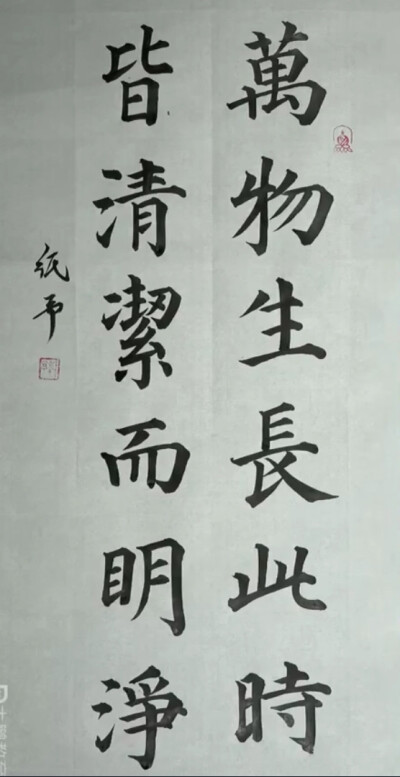 萬物生長此時
皆清潔而明淨
紙帚